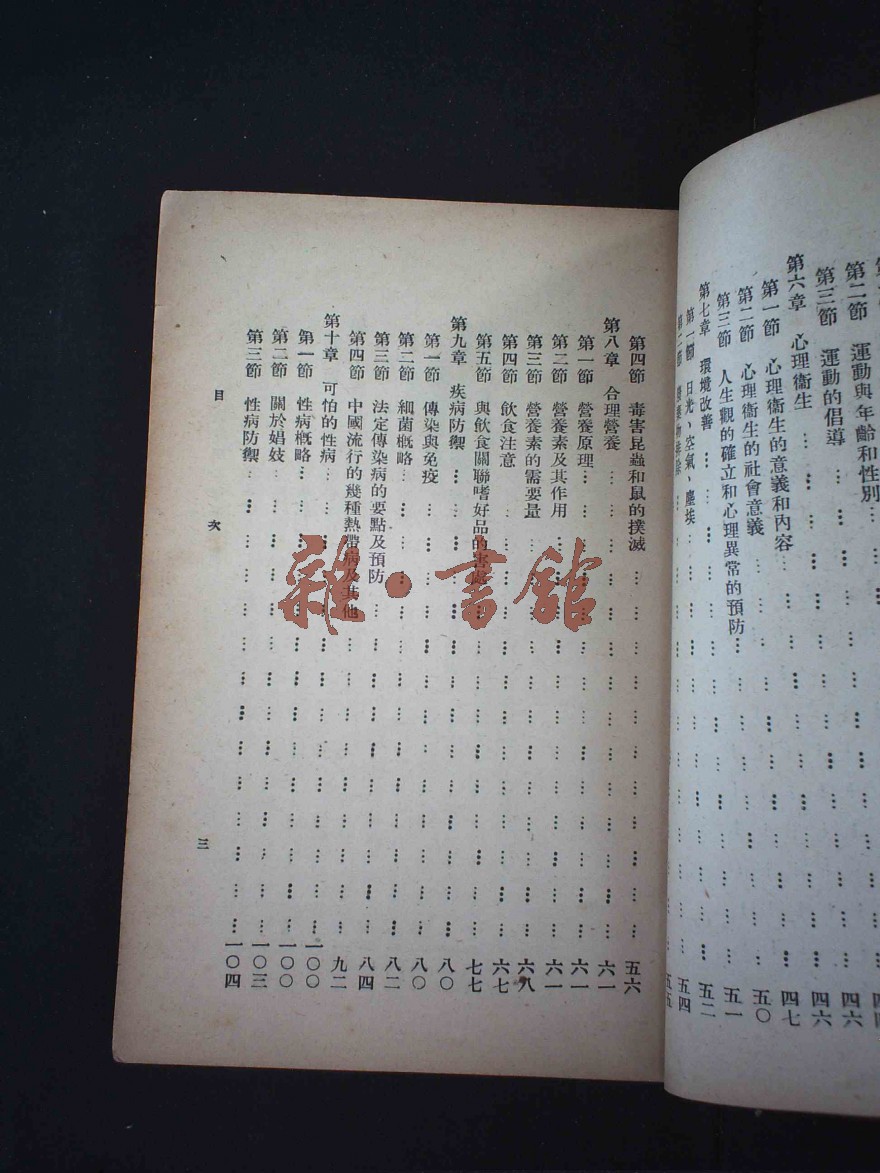 第二節 運動與年齡和性別
第三節 運動的倡導 四六
第六章 心理衞生 四六
第一節 心理衞生的意義和內容 四七
第二節 心理衞生的社會意義 五〇
第三節 人生觀的確立和心理異常的預防 五一
第七章 環境改善 五二
第一節 日光、空氣、塵埃 五四
第二節 五五
第四節 毒害昆蟲和鼠的撲滅 五六
第八章 合理營養 六一
第一節 營養原理 六一
第二節 營養素及其作用 六一
第三節 營養素的需要量 六八
第四節 飲食注意 六七
第五節 與飲食關聯嗜好品的害處 七七
第九章 疾病防禦 八〇
第一節 傳染與免疫 八〇
第二節 細菌概略 八二
第三節 法定傳染病的要點及預防 八四
第四節 中國流行的幾種熱帶病及其他 九二
第十章 可怕的性病 一〇〇
第一節 性病概略 一〇〇
第二節 關於娼妓 一〇三
第三節 性病防禦 一〇四
目次 三
雜·書館